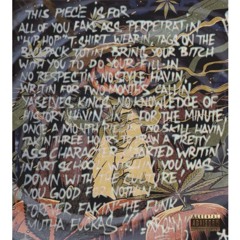 THIS PIECE IS FOR
ALL OF YOU FAKE ASS PERPETRATIN
"HIP HOP" T-SHIRT WEARIN, TAGS ON THE
BACKPACK TOTIN' BRING YOUR BITCH
WITH YOU TO DO YOUR FILL-IN
NO RESPECTIN NO STYLE HAVIN
WRITIN FOR TWO MONTHS CALLIN
YASELVES KINGS NO KNOWLEDGE OF
HISTORY HAVIN FOR THE MINUTE
ONCE A MONTH STILL HAVIN
TAKIN THREE HOURS PRETTY
ASS CHARACTER WRITIN
ART SCHOOL YOU WAS
DOWN WITH CULTURE!
YOU GOOD FER NOTHIN
FOREVER FAKIN THE FUNK
MUTHA FUCKAS!!!